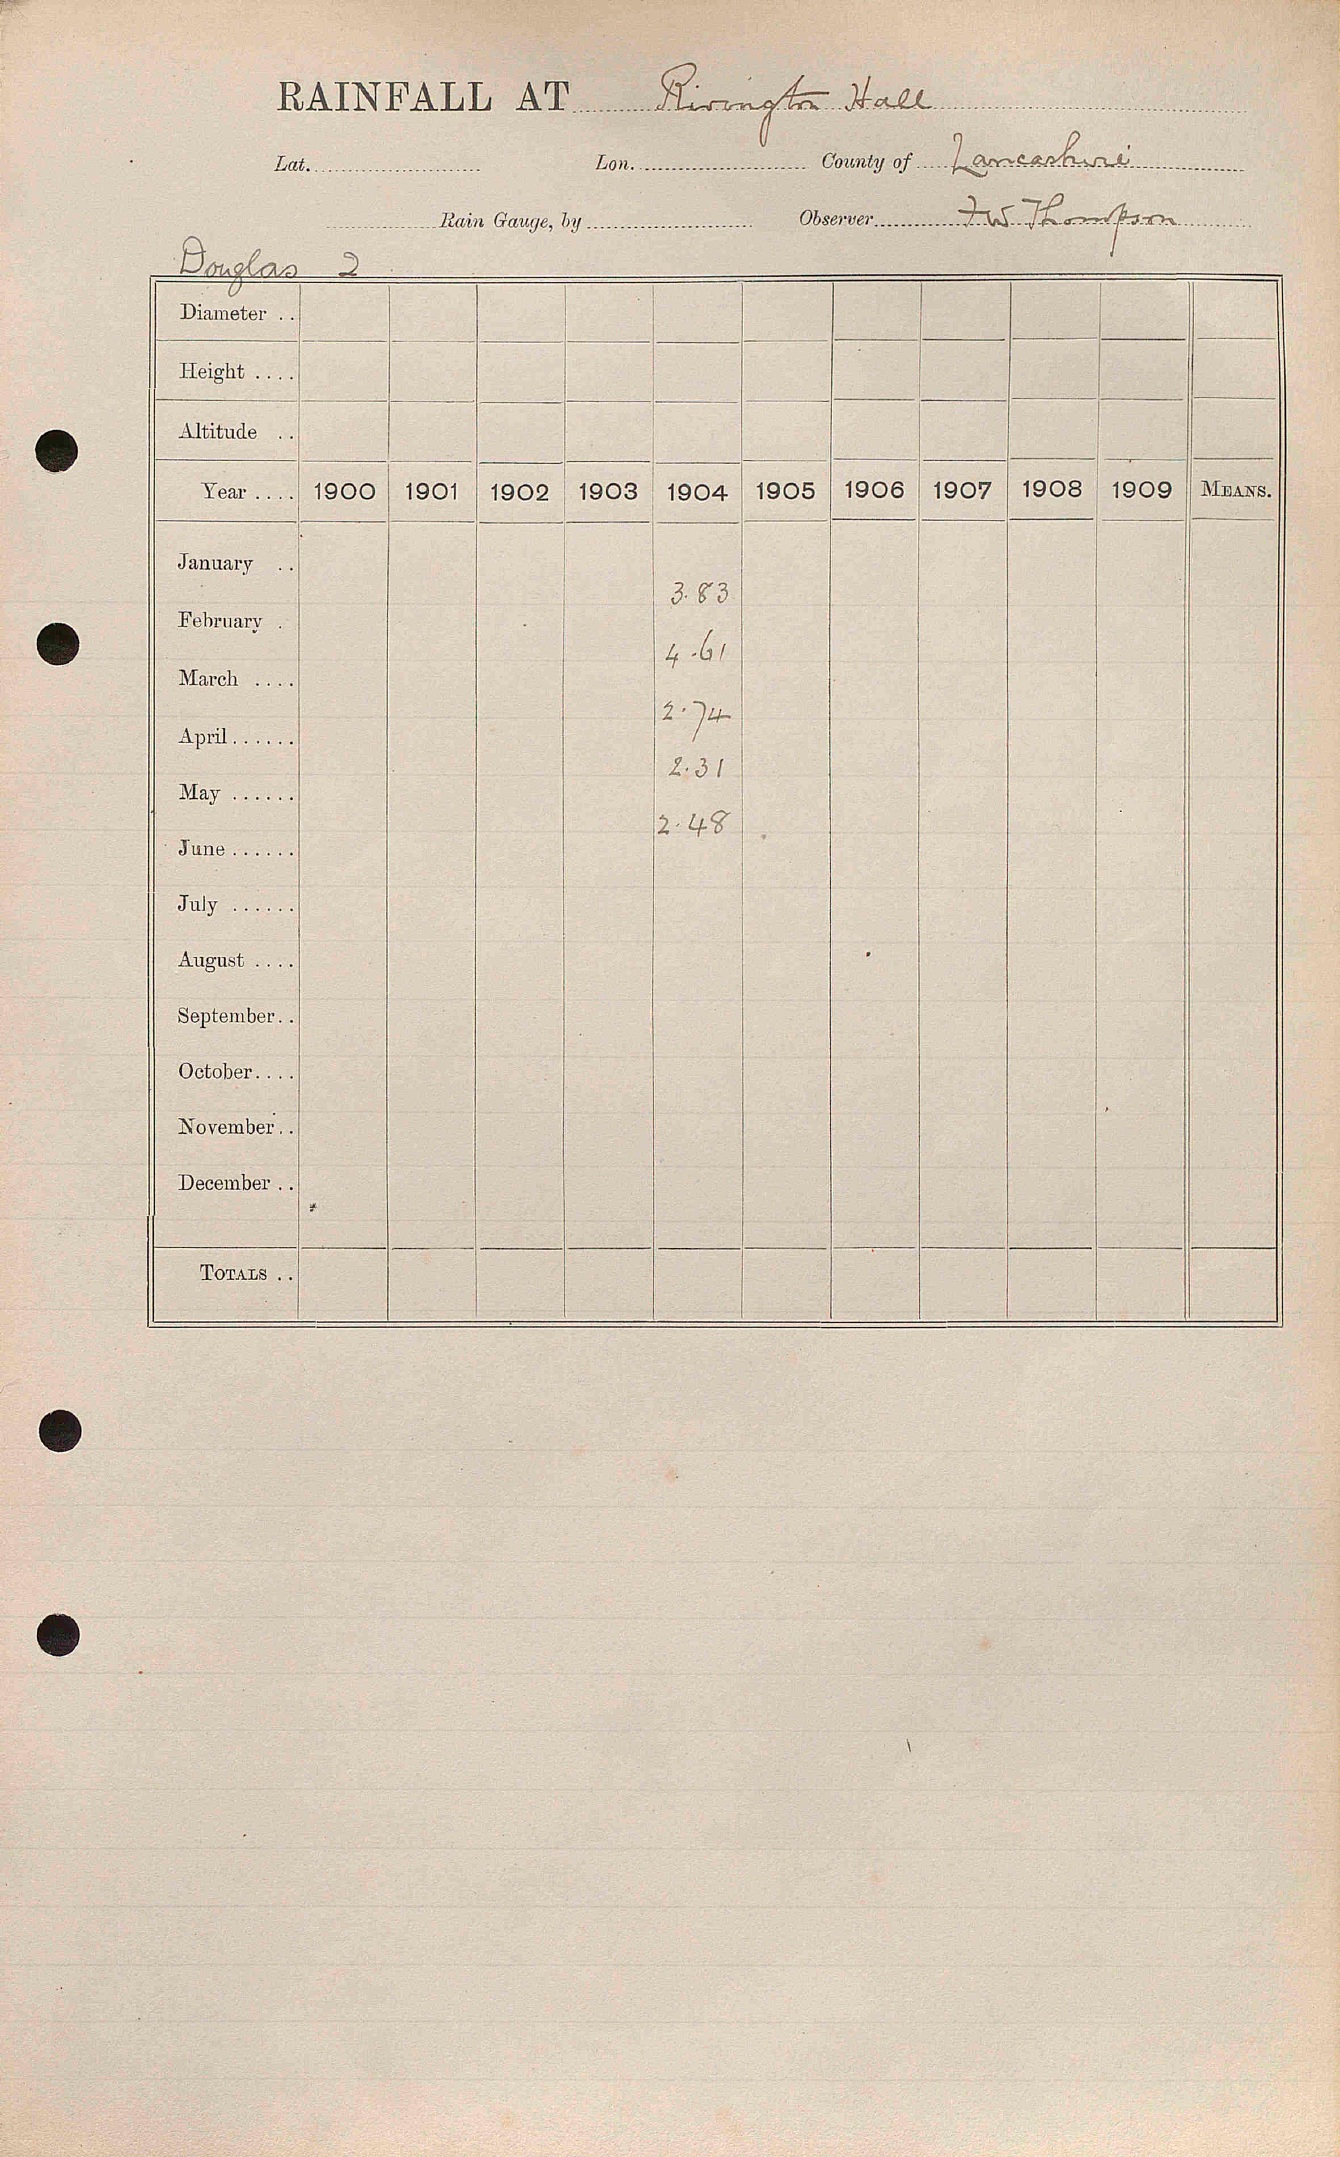 RAINFALL AT Rivington Hall
Lat. Lon. County of Lancashire
Rain Gauge, by Observer F W Thompson
Douglas 2
Diameter ..
Height ....
Altitude ..
Year .... 1900 1901 1902 1903 1904 1905 1906 1907 1908 1909 MEANS.
January ..
3.83
February .
4.61
March ....
2.74
April ......
2.31
May ......
2.48
June ......
July ......
August ....
September..
October....
November..
December ..
TOTALS ..